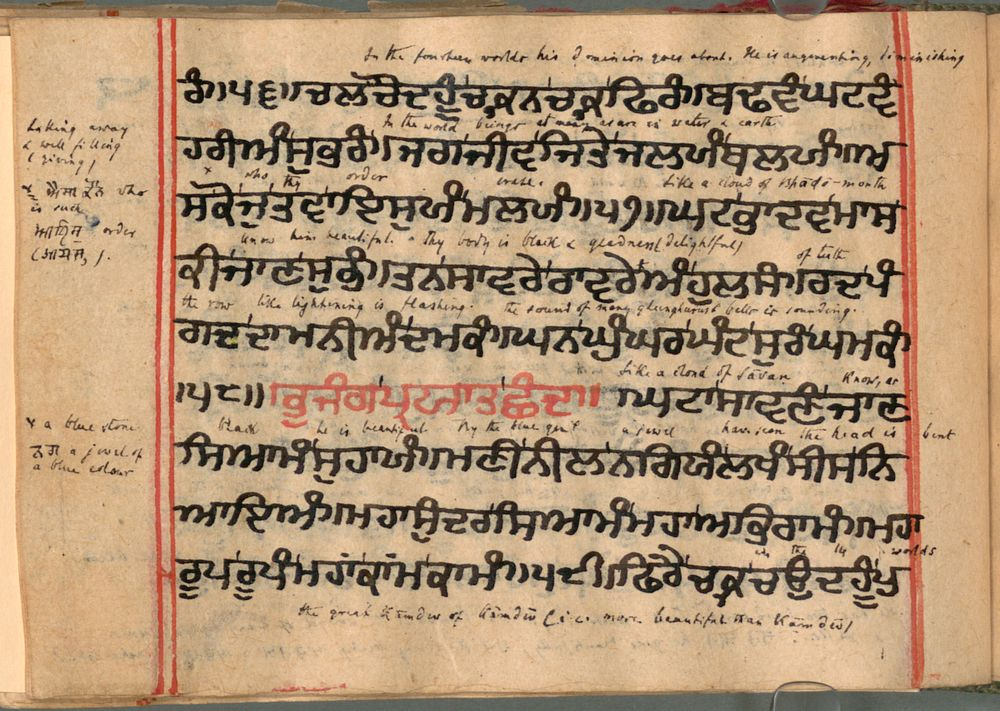 In the fourteen worlds his Dominion goes about. He is augmenting, diminishing
ਰੰਗ।੫੬॥ਚਲੇਚੌਦਹੂੰਚਕ੍ਰਨਚਕ੍ਰਫਿਰੰ।ਬਢਵੰਘਟਵੰ
In the world beings as many as are in water & earth
ਹਰੀਅੰਸੁਭਰੰ।ਜਗਜੀਵਜਿਤੇਜਲਯੰਥਲਯੰ।ਅ
x who thy order erase. Like a cloud of Bhādo-month
ਸਕੋਜੁਤਵਾਇਸੁਯੰਮਲਯੰ।੫੭॥ਘਟਭਾਦਵਮਾਸ
know him beautiful. Thy body is black & gladness (delightful) of teeth
ਕੀਜਾਣਸੁਭੰ।ਤਨਸਾਵਰੇਰਾਵਰੇਅੰਹੁਲਸੰ।ਰਦਪੰ
the row like lightening is flashing. the sound of many ghunghurust bells is sounding.
ਗਦਦਾਮਨੀਅੰਦਮਕੰ।ਘਨਘੁੰਘਰਘੰਟਸੁਰੰਘਮਕੰ
Like a cloud of Sāvan Know, as
।੫੮॥ਭੁਜੰਗਪ੍ਰਯਾਤਛੰਦ॥ਘਟਾਸਾਵਣੰਜਾਣ
black he is beautiful. By the blue gem a jewel have seen the head is bent
ਸਿਆਮੰਸੁਹਾਯੰ।ਮਣੀਨੀਲਨਗਿਯੰਲਖੰਸੀਸਨਿ
ਆਇਅੰ।ਮਹਾਸੁੰਦਰਸਿਆਮੰਮਹਾਅਭਿਰਾਮੰ।ਮਹਾ
in the 14 worlds
ਰੂਪਰੂਪੰਮਹਾਂਕਾਂਮਕਾਮੰ।੫੯॥ਫਿਰੈਚਕ੍ਰਚਉਦਹੂੰਪੁ
the great Kāmdev of Kāmdev (i.e. more beautiful than Kāmdev)
taking away
& well filling
(giving)
x ਐਸਾ ਕੌਨ who
is such
order
x a blue stone
ਨਗ a jewel of
a blue colour